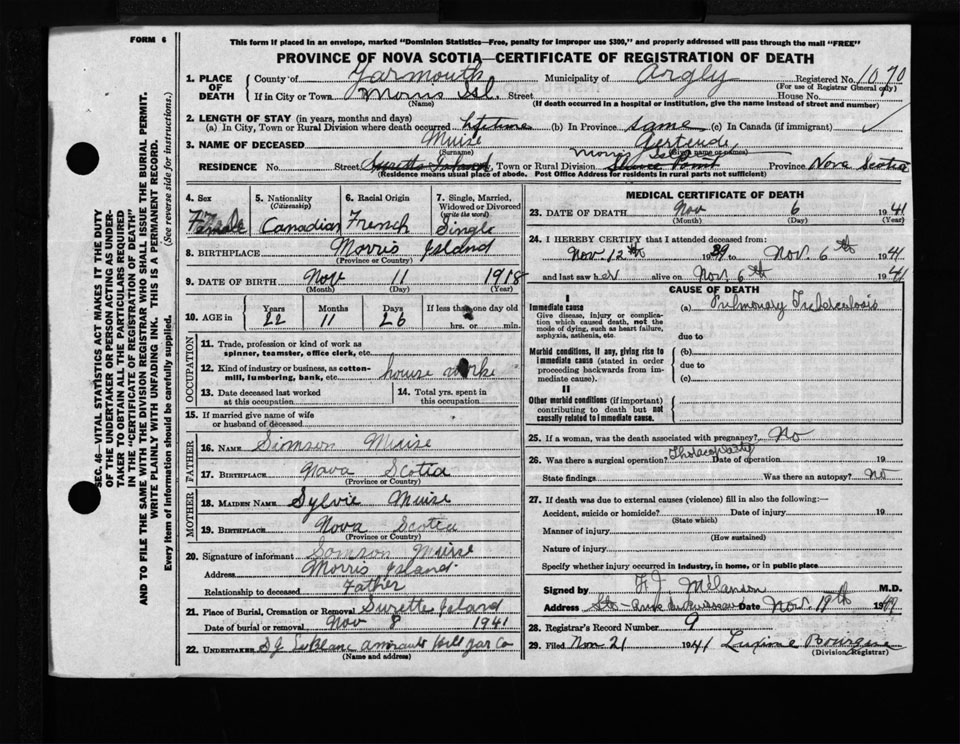 FORM 6
This form if placed in an envelope, marked "Dominion Statistics—Free, penalty for improper use $300," and properly addressed will pass through the mail "FREE"
PROVINCE OF NOVA SCOTIA—CERTIFICATE OF REGISTRATION OF DEATH
1. PLACE OF DEATH County of Yarmouth Municipality of Argly Registered No. 1070
(For use of Registrar General only)
If in City or Town Morris Isl. Street House No.
(Name) (If death occurred in a hospital or institution, give the name instead of street and number)
2. LENGTH OF STAY (in years, months and days)
(a) In City, Town or Rural Division where death occurred lifetime (b) In Province same (c) In Canada (if immigrant)
3. NAME OF DECEASED Muise Gertrude
(Surname) (Given name or names)
Morris Island
RESIDENCE No. Street Surette Island, Town or Rural Division Province Nova Scotia
(Residence means usual place of abode. Post Office Address for residents in rural parts not sufficient)
SEC. 46—VITAL STATISTICS ACT MAKES IT THE DUTY
OF THE UNDERTAKER OR PERSON ACTING AS UNDERTAKER TO OBTAIN ALL THE PARTICULARS REQUIRED
IN THE "CERTIFICATE OF REGISTRATION OF DEATH"
AND TO FILE THE SAME WITH THE DIVISION REGISTRAR WHO SHALL ISSUE THE BURIAL PERMIT.
WRITE PLAINLY WITH UNFADING INK. THIS IS A PERMANENT RECORD.
Every item of information should be carefully supplied. (See reverse side for instructions.)
4. Sex Female
5. Nationality (Citizenship) Canadian
6. Racial Origin French
7. Single, Married, Widowed or Divorced (write the word) Single
8. BIRTHPLACE Morris Island
(Province or Country)
9. DATE OF BIRTH Nov 11 1918
(Month) (Day) (Year)
10. AGE in Years 22 Months 11 Days 26 If less than one day old hrs. or min.
OCCUPATION
11. Trade, profession or kind of work as spinner, teamster, office clerk, etc.
12. Kind of industry or business, as cotton-mill, lumbering, bank, etc. house worke
13. Date deceased last worked at this occupation
14. Total yrs. spent in this occupation
15. If married give name of wife or husband of deceased
FATHER
16. NAME Simson Muise
17. BIRTHPLACE Nova Scotia
(Province or Country)
MOTHER
18. MAIDEN NAME Sylvie Muise
19. BIRTHPLACE Nova Scotia
(Province or Country)
20. Signature of informant Somson Muise
Address Morris Island
Relationship to deceased Father
21. Place of Burial, Cremation or Removal Surette Island
Date of burial or removal Nov 8 1941
22. UNDERTAKER S.J. LeBlanc Amiraults Hill Yar Co
(Name and address)
MEDICAL CERTIFICATE OF DEATH
23. DATE OF DEATH Nov 6 1941
(Month) (Day)
24. I HEREBY CERTIFY that I attended deceased from:
Nov. 12th 1939 to Nov. 6th 1941
and last saw her alive on Nov 6th 1941
CAUSE OF DEATH
I
Immediate cause
Give disease, injury or complication which caused death, not the mode of dying, such as heart failure, asphyxia, asthenia, etc.
(a) Pulmonary Tuberculosis
due to
Morbid conditions, if any, giving rise to immediate cause (stated in order proceeding backwards from immediate cause).
(b)
due to
(c)
II
Other morbid conditions (if important) contributing to death but not causally related to immediate cause.
25. If a woman, was the death associated with pregnancy? No
26. Was there a surgical operation? Date of operation 19
State findings Was there an autopsy? no
27. If death was due to external causes (violence) fill in also the following:—
Accident, suicide or homicide? Date of injury 19
(State which)
Manner of injury
(How sustained)
Nature of injury
Specify whether injury occurred in industry, in home, or in public place
Signed by F J Melanson M.D.
Address Date Nov. 19th 1941
28. Registrar's Record Number 9
29. Filed Nov 21 1941
(Division Registrar)